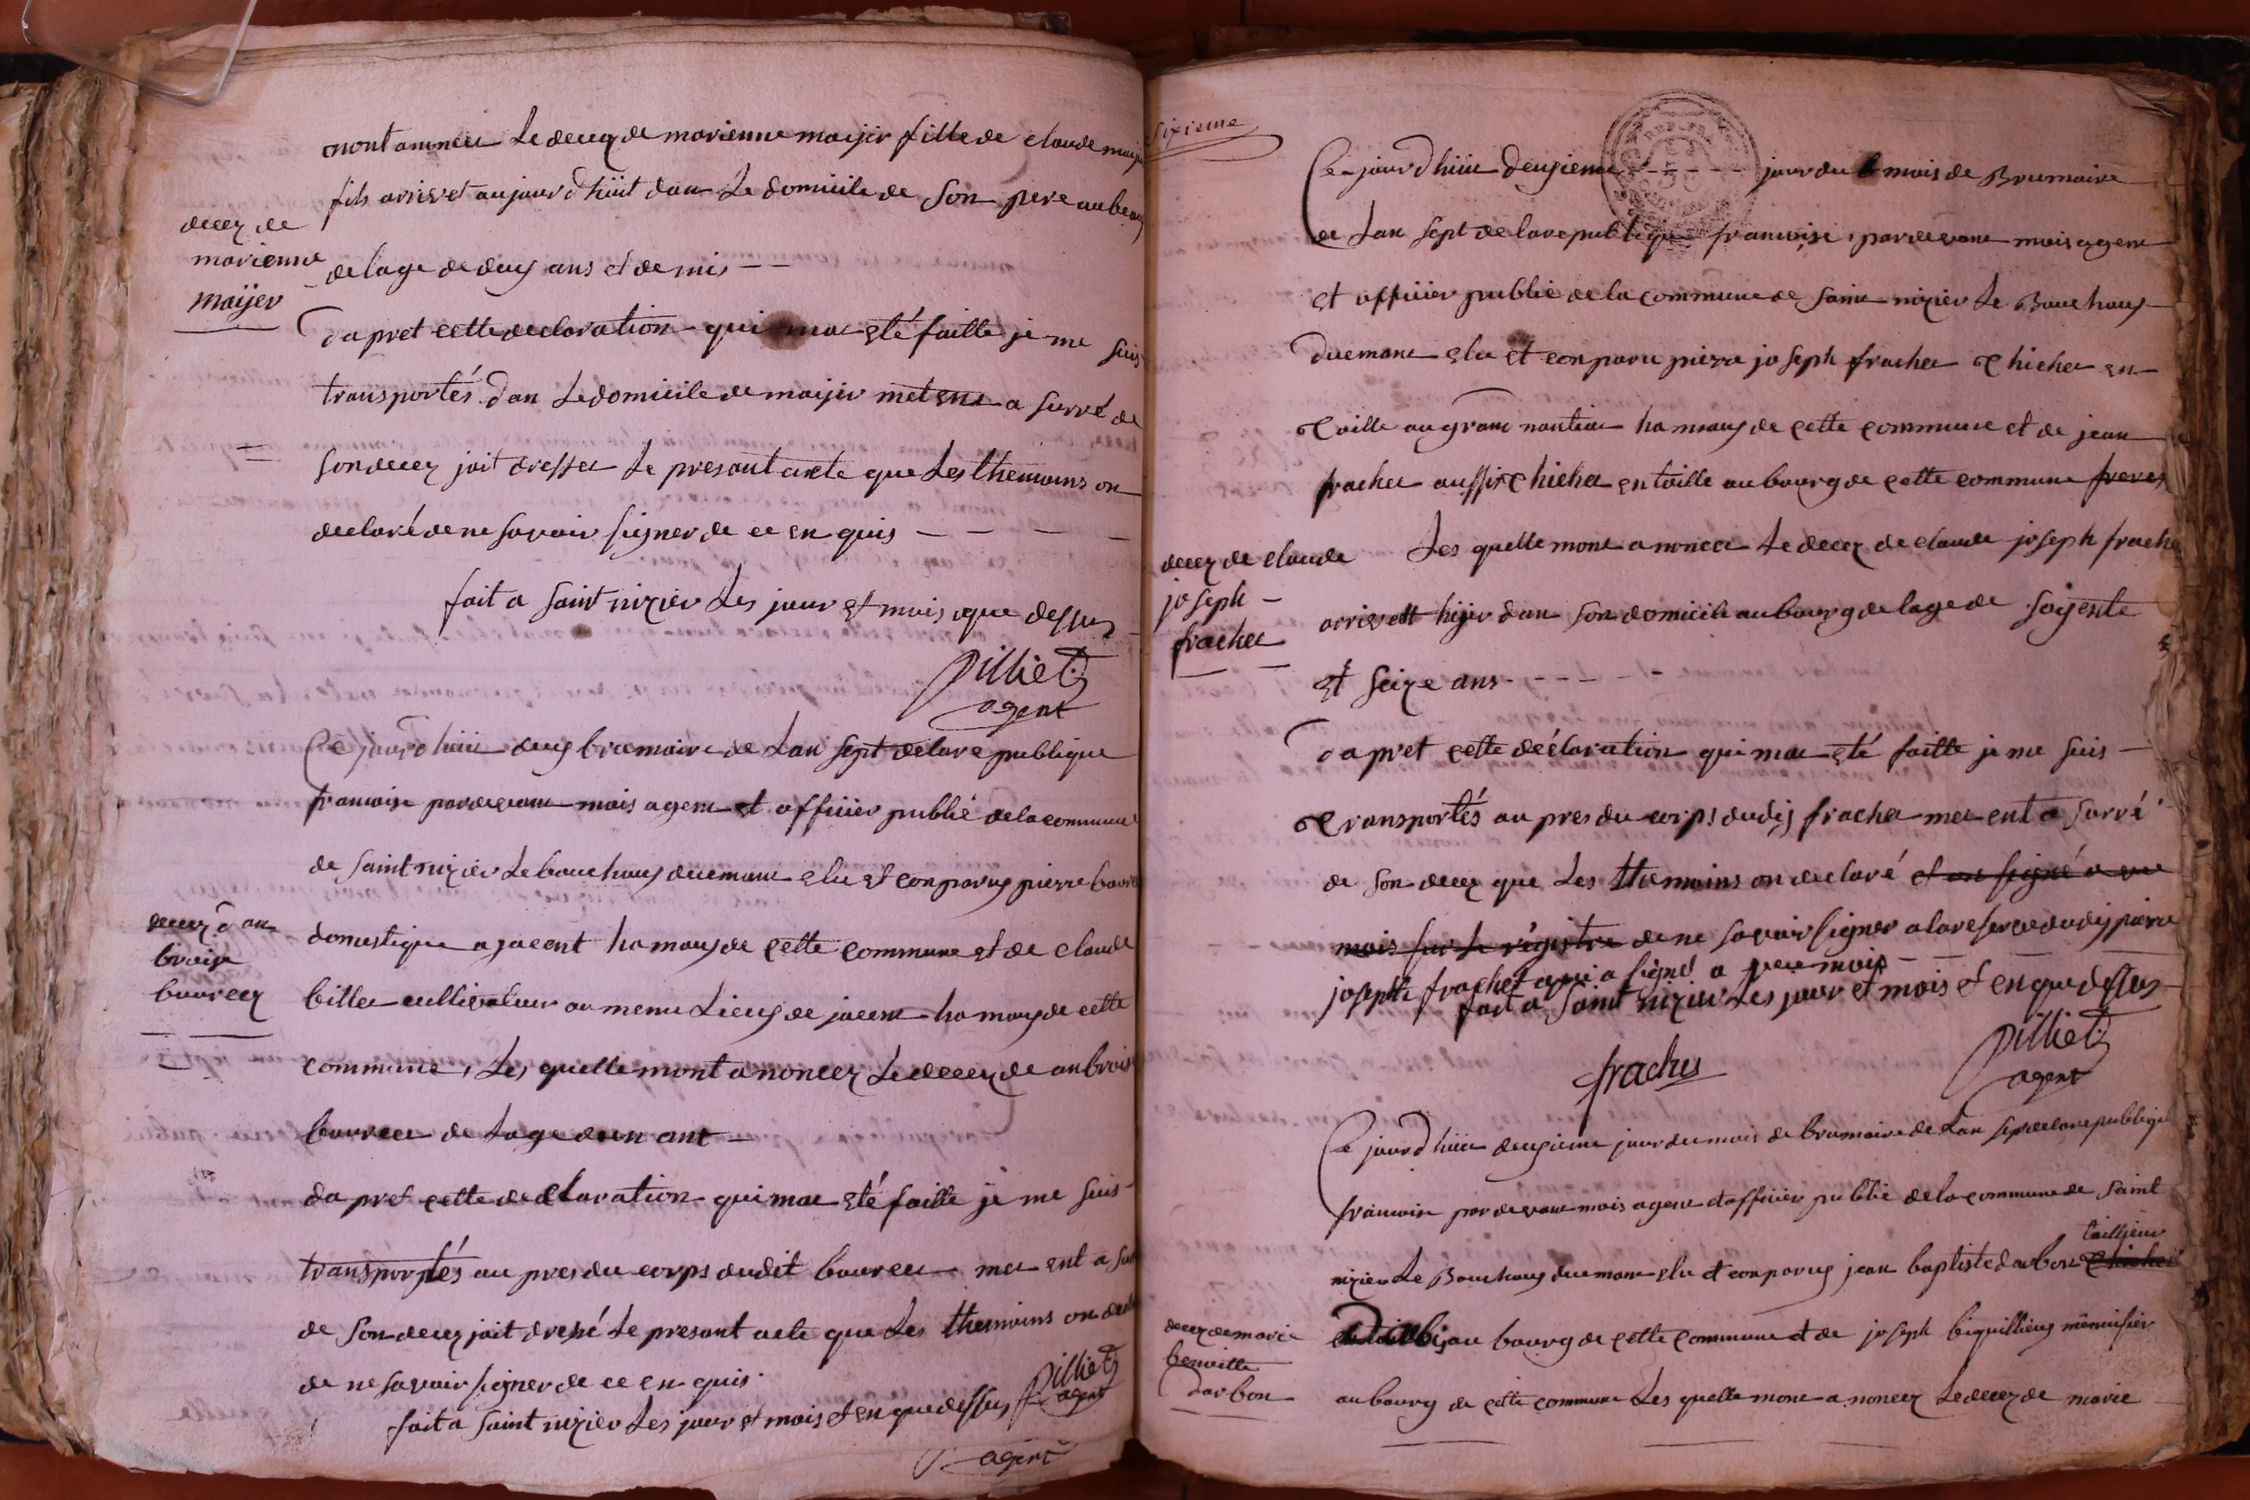 mont annoncé Le decez de marienne maijer fille de claude maijer
fils arrivet aujourd'huit dan Le domicile de Son pere au bourg
decez de
marienne
maijer
de lage de deuy ans et demis
d'apret cette declaration qui ma eté faitte je me suis
transportés dan Le domicile de maijer met ent a surré de
son decez jait dresser Le presant acte que Les themoins on
declaré de ne savoir signer de ce enquis
fait a saint nizier Les jour et mois que dessus
pilliet
agent
Ce jourd'huit deuy brumaire de Lan sept de la republique
francoise par devant mois agent et officier publié de la commune
de saint nizier Le bouchouy duement elu et conparuy pierre bourec
decez d'an
broise
bourecez
domestique a jacent hamauy de cette commune et de claude
biller cultivateur au meme Lieuy de jacent hamauy de cette
commune, Les quelle mont anoncez Le decez de anbroise
bourecer de Lage dun ant
dapret cette declaration qui ma eté faitte je me suis
transportés au pres du corps dudit bourecer met ent a surré
de son decez jait dressé Le presant acte que Les themoins on declaré
de ne savoir signer de ce enquis
fait a saint nizier Les jour et mois et en que dessus pilliet
agent
agent
sixieme
Ce jourd'huit deuyieme jour du mois de Brumaire
de Lan sept de la republique francoise, par devant mois agent
et officier publié de la commune de saint nizier Le Bouchouy
duement elu et conparu pierre joseph fracher Chicher en
toille au grant nantieu hamauy de cette commune et de jean
fracher aussi Chicher en toille au bourg de cette commune freres
Les quelle mont anoncer Le decez de claude joseph fracher
decez de claude
joseph
fracher
arrivett hijer dan son domicile au bourg de lage de soisente
et seize ans
dapret cette déclaration qui ma eté faitte je me suis
transportés au pres du corps dudij fracher met ent a surré
de son decez que Les themoins on declaré et on signé a vec
mois sur Le régistre de ne savoir signer a la reserve dudij pierre
joseph frachet qui a signé a vec mois
fait a saint nizier Les jour et mois et en que dessus
frachet
pilliet
agent
Ce jourd'huit deuyieme jour du mois de brumaire de Lan sept de la republique
francoise par devant mois agent et officier publié de la commune de saint
taillieur
nizier Le Bouchouy duement elu et conparuy jean baptiste darbon Chicher
au bourg de cette commune et de joseph biquillieuyménuisier
decez de marie
benoitte
darbon
au bourg de cette commune Les quelle mont anoncez Le decez de marie